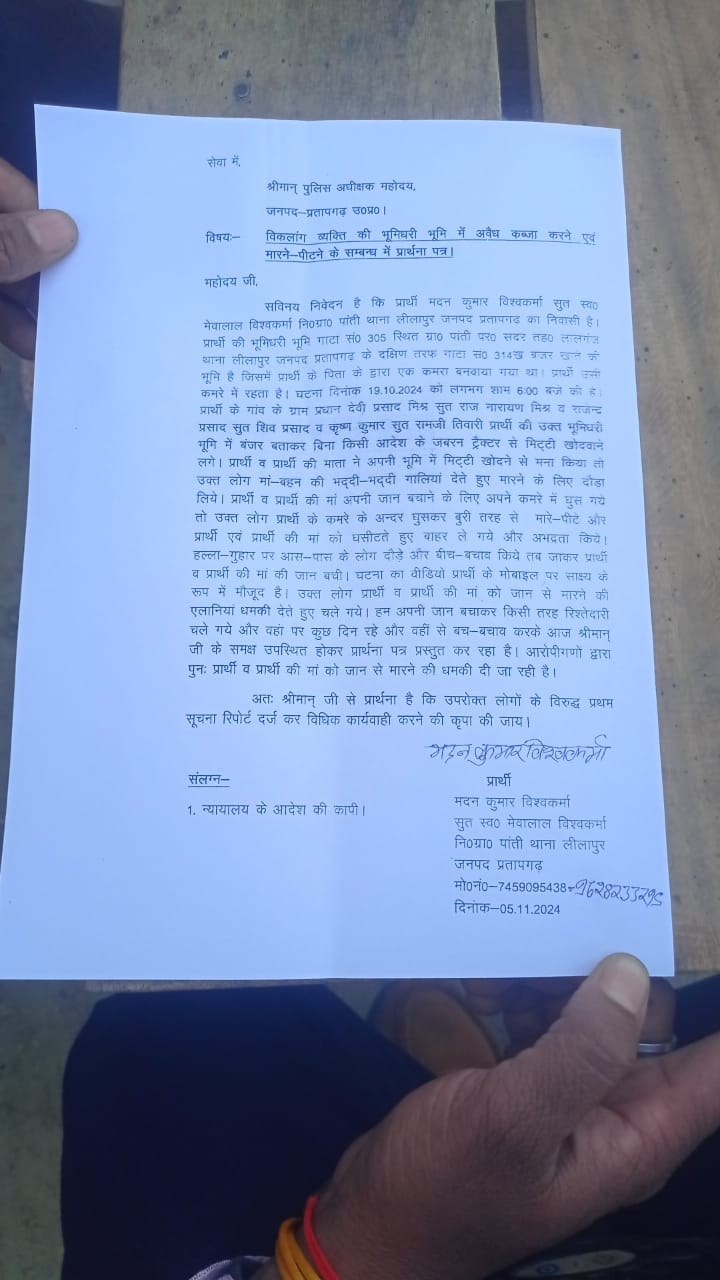 सेवा में,
श्रीमान् पुलिस अधीक्षक महोदय,
जनपद–प्रतापगढ़ उ0प्र0।
विषयः– विकलांग व्यक्ति की भूमिधरी भूमि में अवैध कब्जा करने एवं
मारने–पीटने के सम्बन्ध में प्रार्थना पत्र।
महोदय जी,
सविनय निवेदन है कि प्रार्थी मदन कुमार विश्वकर्मा सुत स्व0
मेवालाल विश्वकर्मा नि0ग्रा0 पांती थाना लीलापुर जनपद प्रतापगढ़ का निवासी है।
प्रार्थी की भूमिधरी भूमि गाटा सं0 305 स्थित ग्रा0 पांती पर0 सदर तह0 लालगंज
थाना लीलापुर जनपद प्रतापगढ़ के दक्षिण तरफ गाटा सं0 314ख बंजर खाते की
भूमि है जिसमें प्रार्थी के पिता के द्वारा एक कमरा बनवाया गया था। प्रार्थी उसी
कमरे में रहता है। घटना दिनांक 19.10.2024 को लगभग शाम 6:00 बजे की है।
प्रार्थी के गांव के ग्राम प्रधान देवी प्रसाद मिश्र सुत राज नारायण मिश्र व राजेन्द्र
प्रसाद सुत शिव प्रसाद व कृष्ण कुमार सुत रामजी तिवारी प्रार्थी की उक्त भूमिधरी
भूमि में बंजर बताकर बिना किसी आदेश के जबरन ट्रैक्टर से मिट्टी खोदवाने
लगे। प्रार्थी व प्रार्थी की माता ने अपनी भूमि में मिट्टी खोदने से मना किया तो
उक्त लोग मां–बहन की भद्दी–भद्दी गालियां देते हुए मारने के लिए दौड़ा
लिये। प्रार्थी व प्रार्थी की मां अपनी जान बचाने के लिए अपने कमरे में घुस गये
तो उक्त लोग प्रार्थी के कमरे के अन्दर घुसकर बुरी तरह से मारे–पीटे और
प्रार्थी एवं प्रार्थी की मां को घसीटते हुए बाहर ले गये और अभद्रता किये।
हल्ला–गुहार पर आस–पास के लोग दौड़े और बीच–बचाव किये तब जाकर प्रार्थी
व प्रार्थी की मां की जान बची। घटना का वीडियो प्रार्थी के मोबाइल पर साक्ष्य के
रूप में मौजूद है। उक्त लोग प्रार्थी व प्रार्थी की मां को जान से मारने की
एलानियां धमकी देते हुए चले गये। हम अपनी जान बचाकर किसी तरह रिश्तेदारी
चले गये और वहां पर कुछ दिन रहे और वहीं से बच–बचाव करके आज श्रीमान्
जी के समक्ष उपस्थित होकर प्रार्थना पत्र प्रस्तुत कर रहा है। आरोपीगणों द्वारा
पुनः प्रार्थी व प्रार्थी की मां को जान से मारने की धमकी दी जा रही है।
अतः श्रीमान् जी से प्रार्थना है कि उपरोक्त लोगों के विरुद्ध प्रथम
सूचना रिपोर्ट दर्ज कर विधिक कार्यवाही करने की कृपा की जाय।
मदन कुमार विश्वकर्मा
संलग्न–
1. न्यायालय के आदेश की कापी।
प्रार्थी
मदन कुमार विश्वकर्मा
सुत स्व0 मेवालाल विश्वकर्मा
नि0ग्रा0 पांती थाना लीलापुर
जनपद प्रतापगढ़
मो0नं0–7459095438
दिनांक–05.11.2024